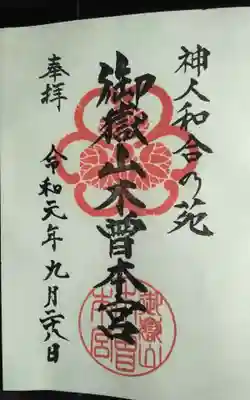 神人和合の苑
御嶽山木曽本宮
奉拝
令和元年九月二八日
御嶽山
木曽
本宮